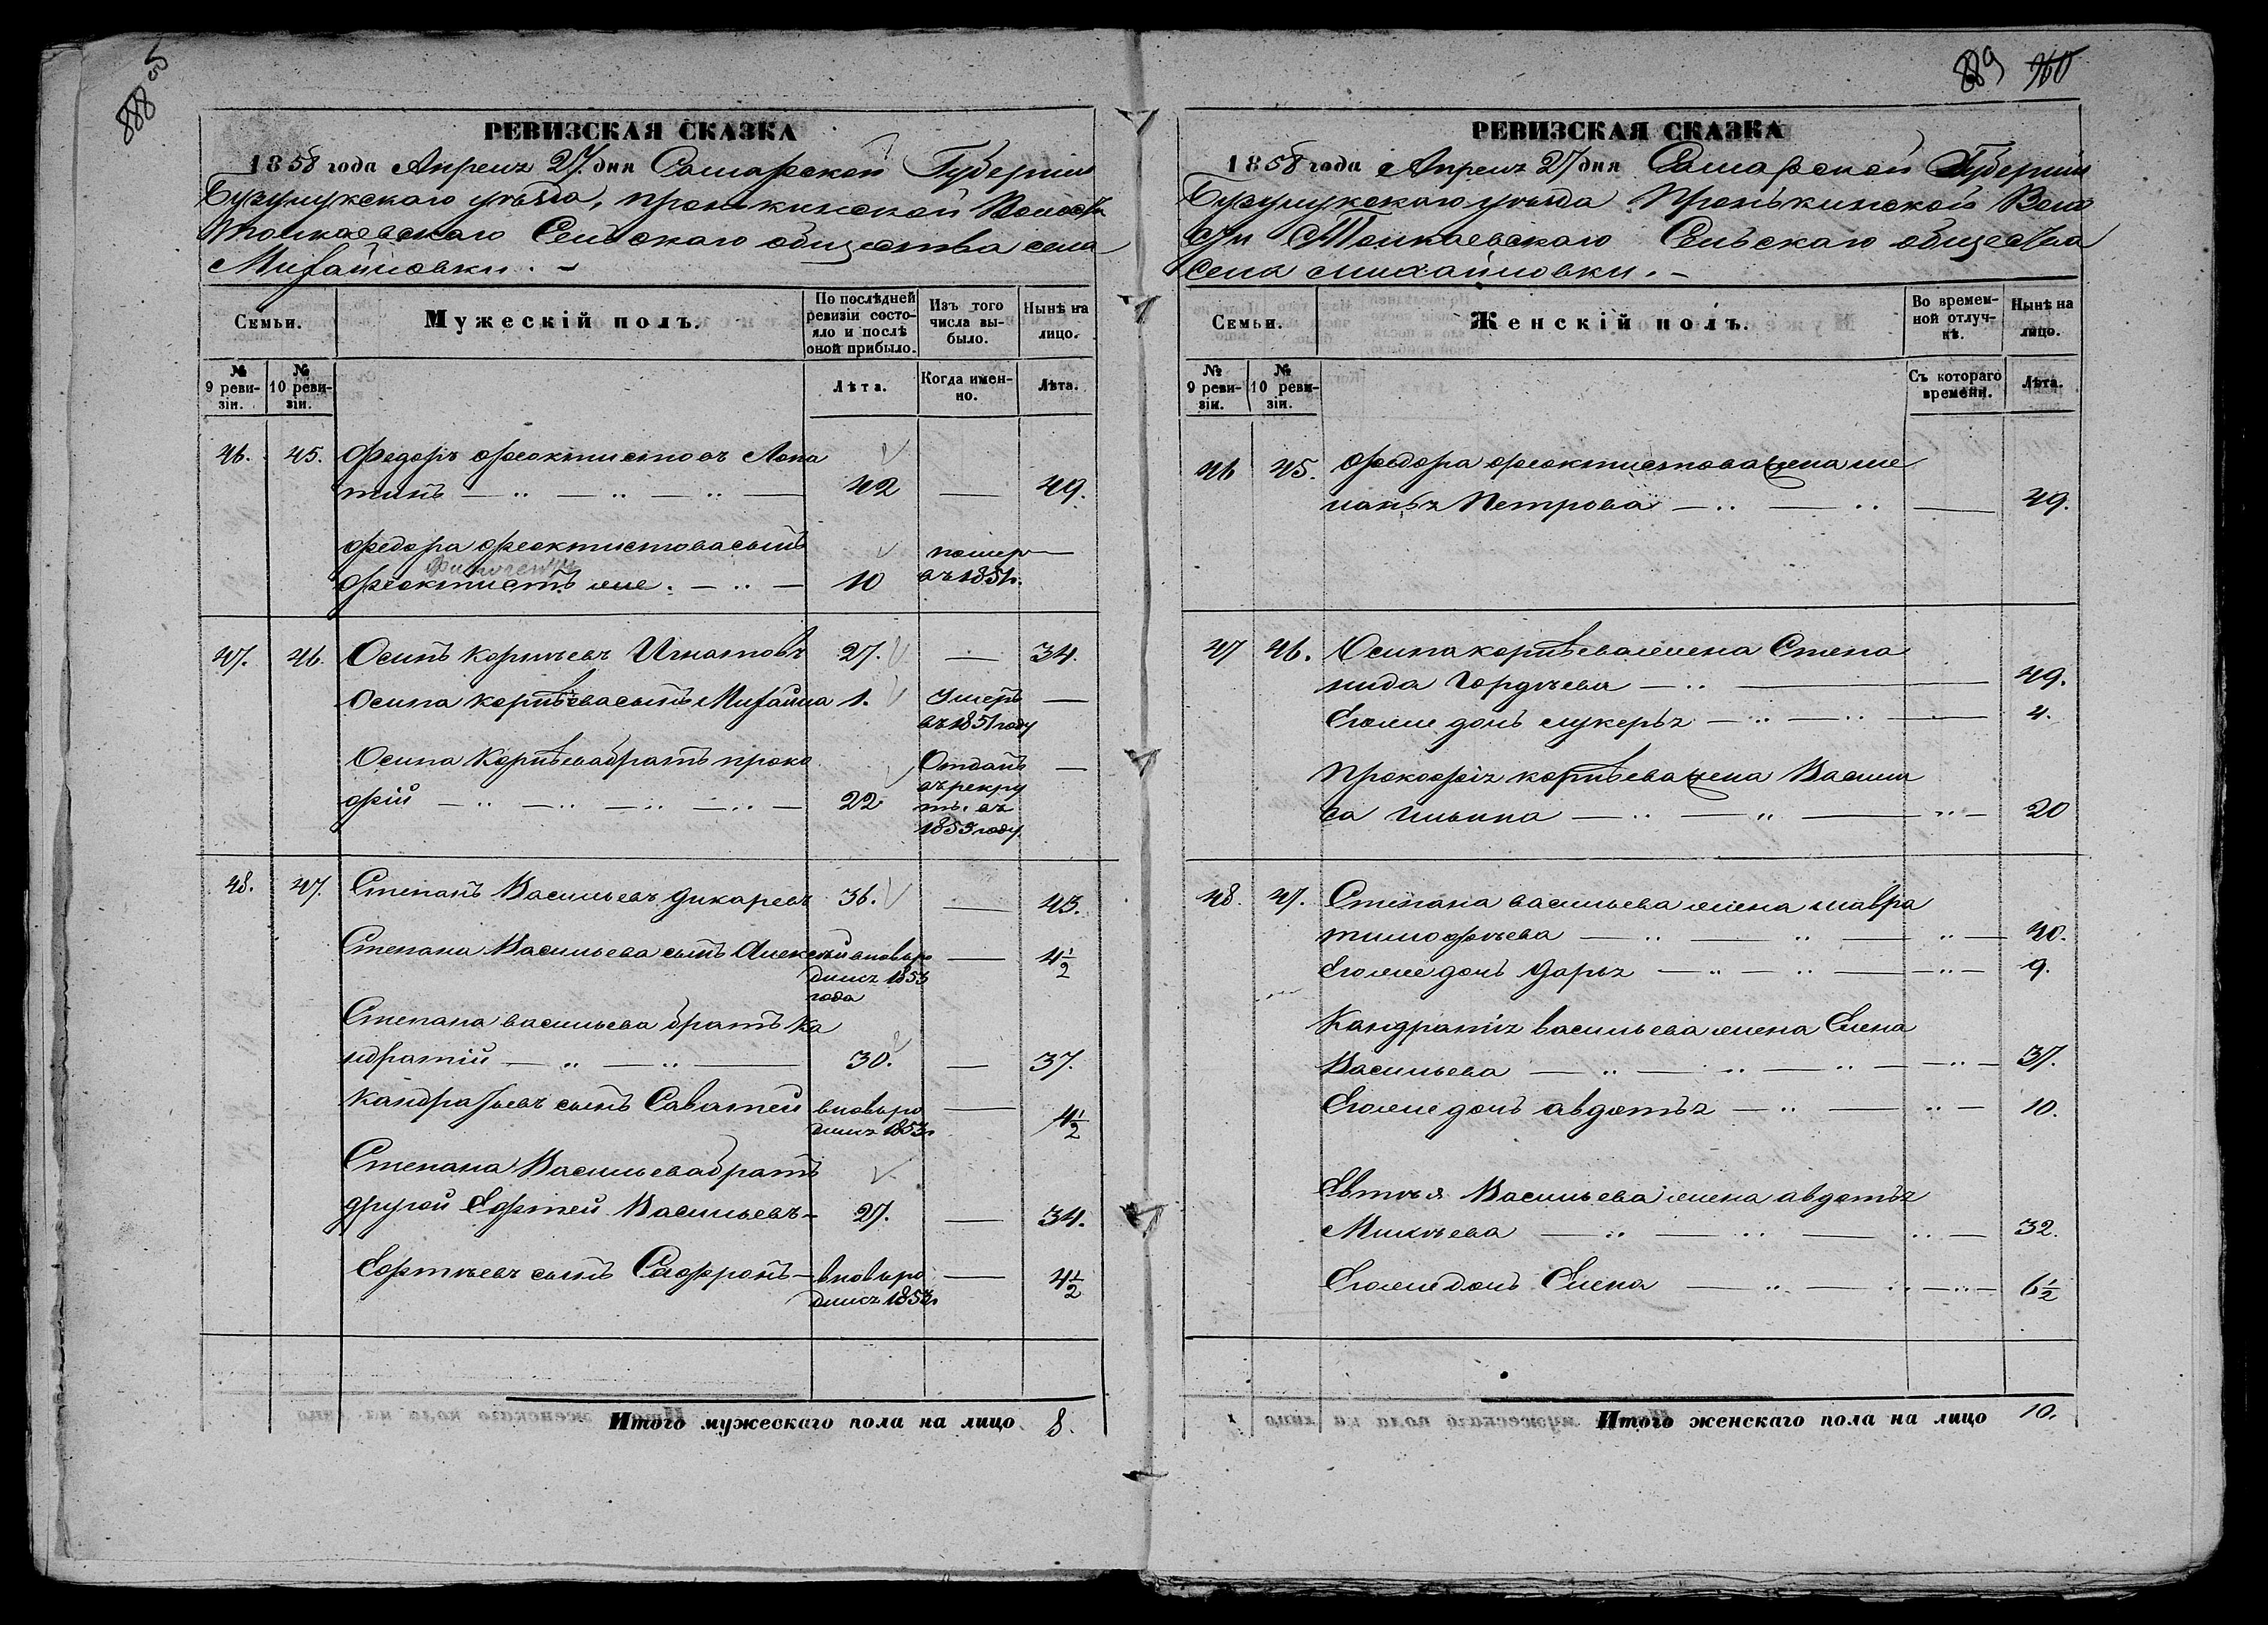 888 об
РЕВИЗСКАЯ СКАЗКА
1858 года Апреля 27 дня Самарской Губернии
Бузулукскаго уѣзда, Пронькинской Волости
Толкаевскаго Сельскаго общества села
Михайловки. -
Семьи.
Мужескій полъ.
По послѣдней ревизіи состояло и послѣ оной прибыло.
Изъ того числа выбыло.
Нынѣ на лицо.
№ 9 ревизіи.
№ 10 ревизіи.
Лѣта.
Когда именно.
Лѣта.
46. 45. Федоръ Феоктистовъ Лопа
тинъ 42 — 49.
Федора Феоктистова сынъ помер
Феоктистъ 10 въ 1851 г.
47. 46. Осипъ Корнѣевъ Игнатовъ 27. — 34.
Осипа Корнѣева сынъ Михайла 1. Умеръ —
въ 1851 году
Осипа Корнѣева братъ Проко Отданъ —
фій 22 въ рекру
ты въ
1853 году
48. 47. Степанъ Васильевъ Дикаревъ 36. — 43.
Степана Васильева сынъ Алексѣй вновь ро — 4½
дился 1853
года
Степана Васильева братъ Ка
ндратій 30. — 37.
Кандратьевъ сынъ Саватей вновь ро — 4½
дился 1853 г
Степана Васильева братъ
другой Ефтей Васильевъ 27. — 34.
Ефтѣевъ сынъ Сафронъ вновь ро — 4½
дился 1853 г
Итого мужескаго пола на лицо 8.
889 960
РЕВИЗСКАЯ СКАЗКА
1858 года Апреля 27 дня Самарской Губернии
Бузулукскаго уѣзда Пронькинской Воло
сти Толкаевскаго Сельскаго общества
села Михайловки. -
Семьи.
Женскій полъ.
Во временной отлучкѣ.
Нынѣ на лицо.
№ 9 ревизіи.
№ 10 ревизіи.
Съ котораго времени.
Лѣта.
46 45. Федора Феоктистова жена ме
ланья Петрова — 49.
47 46. Осипа Корнѣева жена Степа
нида Гордѣева 49.
Его же дочь Лукерья 4.
Прокофія Корнѣева жена Васили
са Ильина 20
48. 47. Степана Васильева жена Мавра
Тимофѣева 40.
Его же дочь Дарья 9.
Кандратія Васильева жена Елена
Васильева 37.
Его же дочь Авдотья 10.
Евтѣя Васильева жена Авдотья
Микѣева 32.
Его же дочь Елена 6½
Итого женскаго пола на лицо 10.